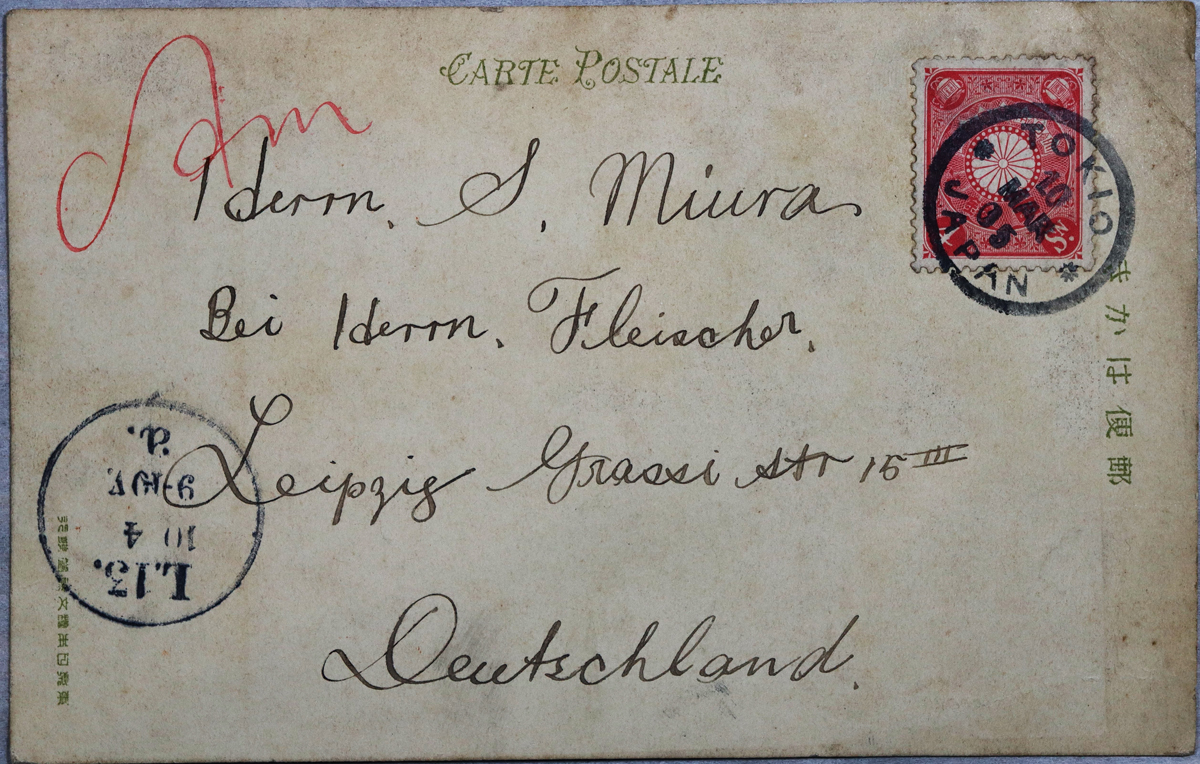 CARTE POSTALE
Am
Herrn. S. Miura
Bei Herrn. Fleischer.
Leipzig Grassi str 15 III
Deutschland.
TOKIO
10
MAR
05
JAPAN
1 Sn.
きかは便郵
L.13.
10 4
9-10V.